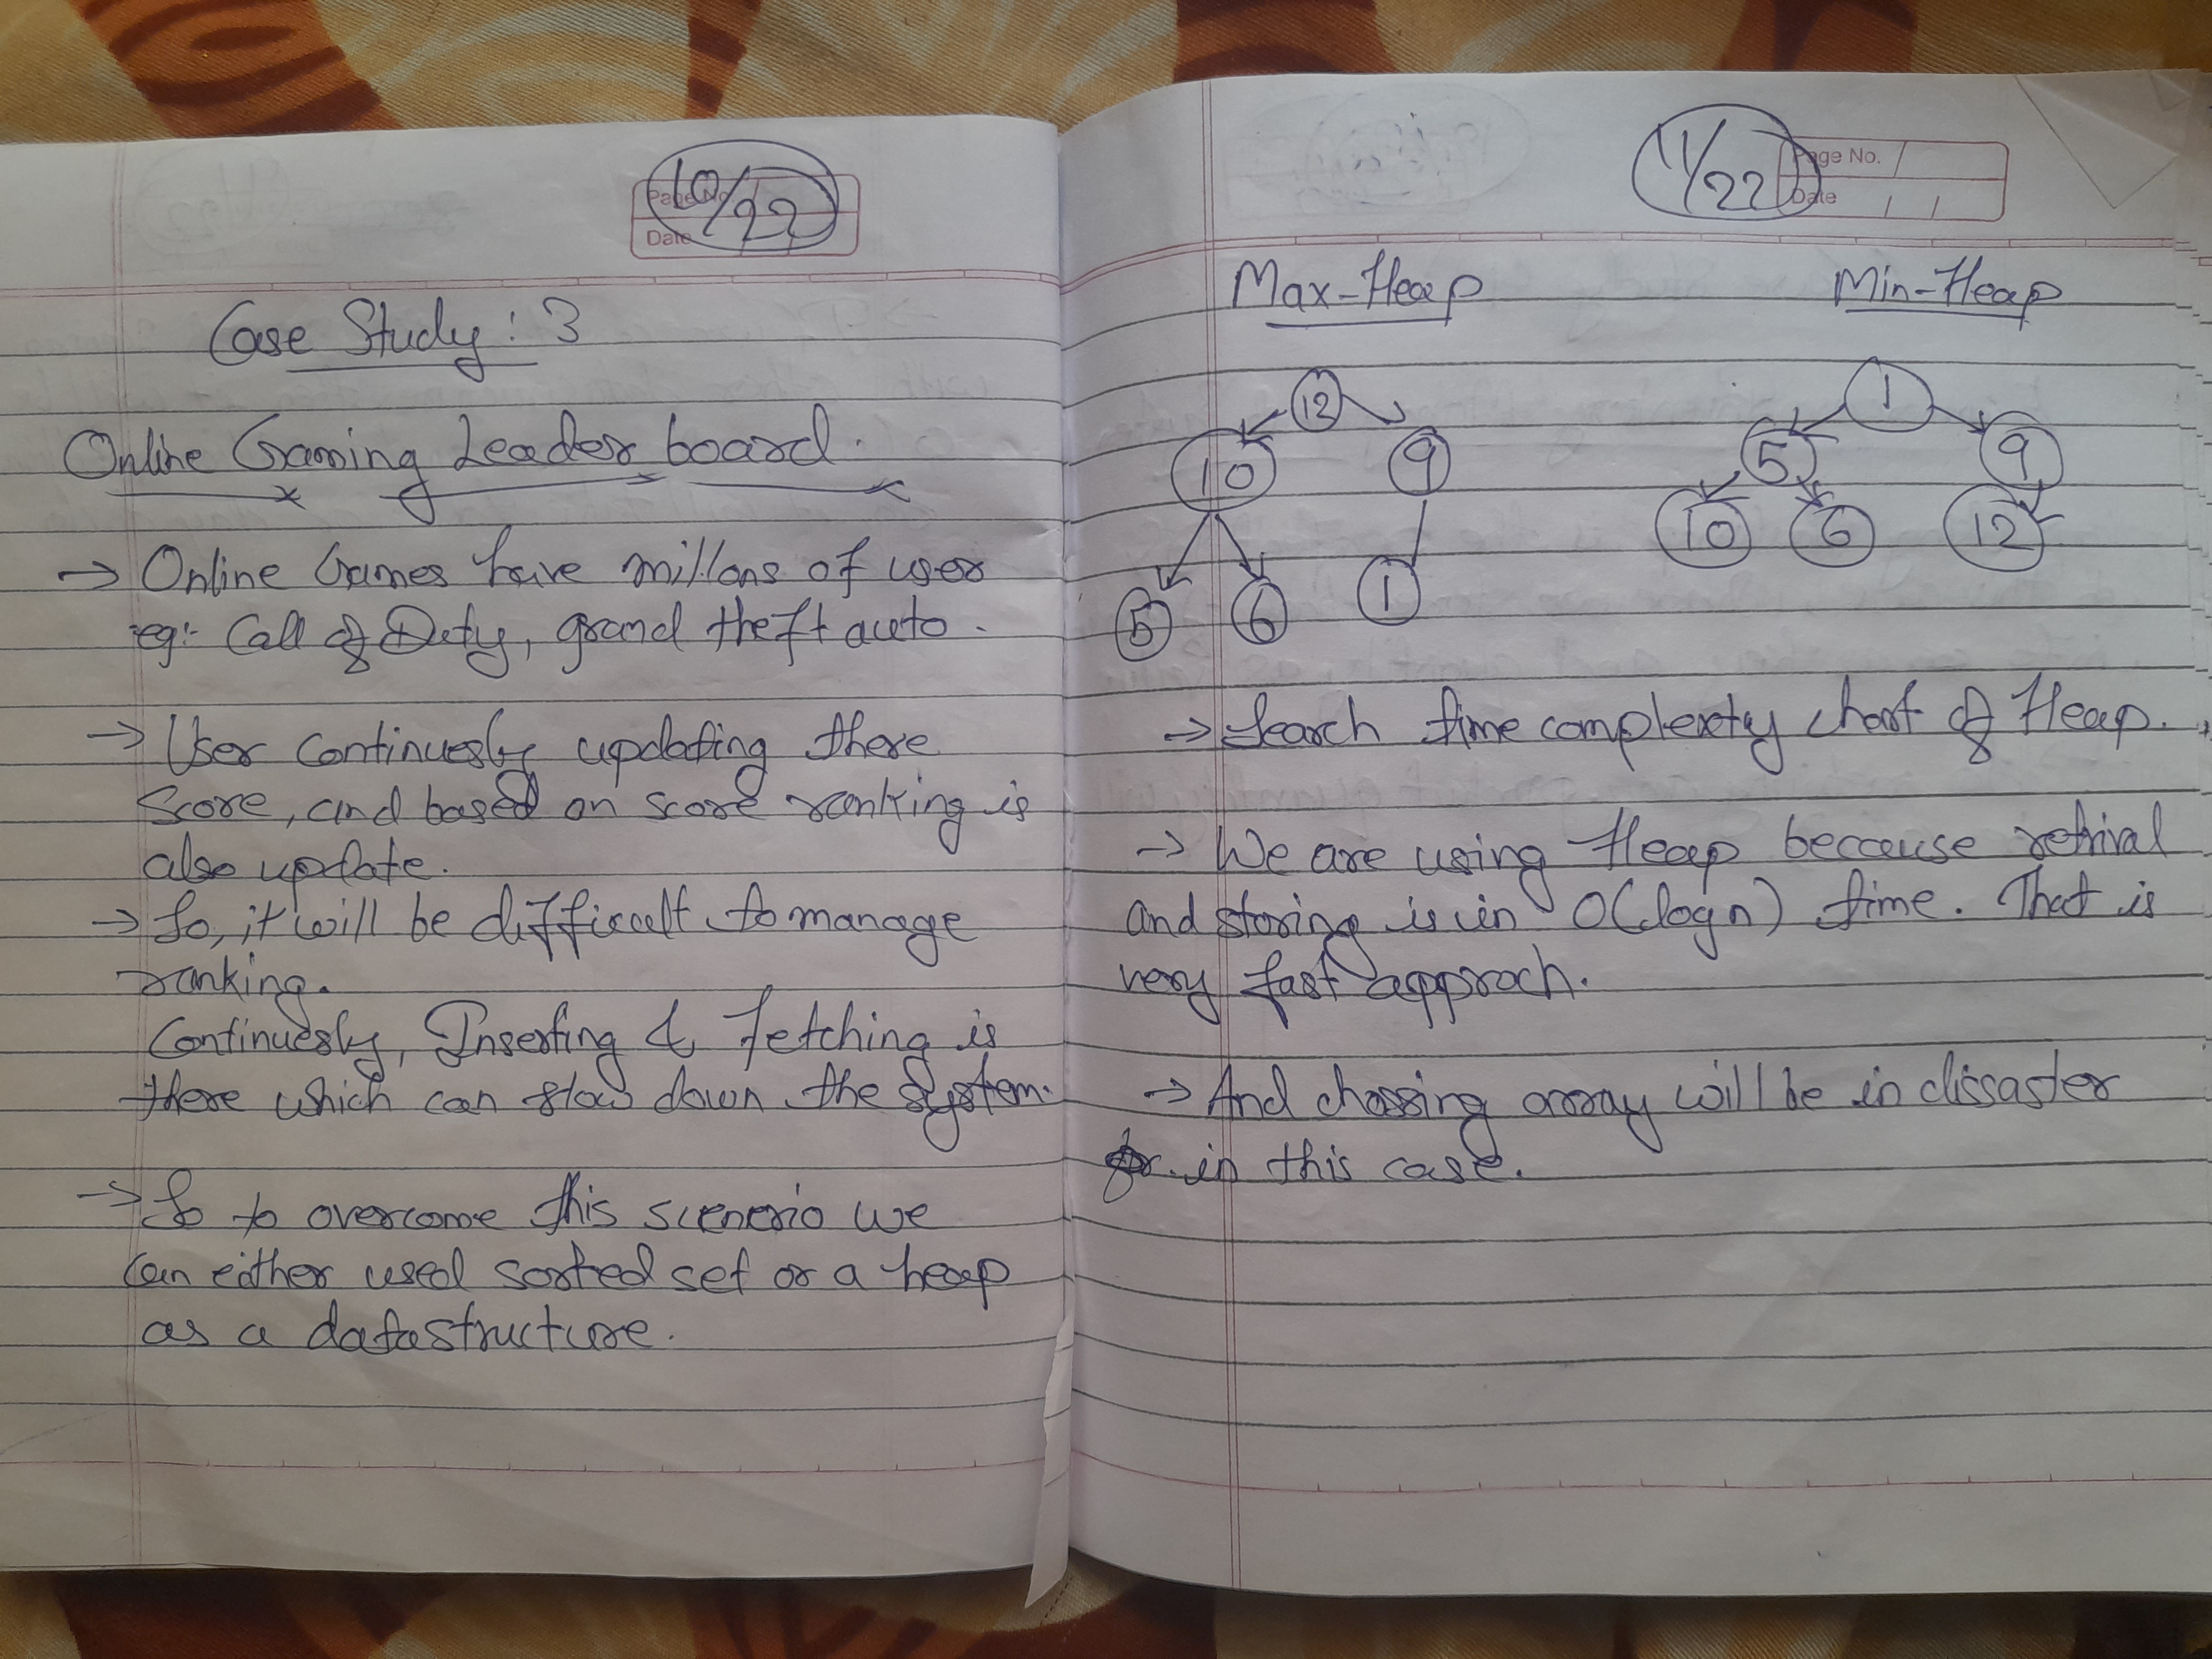 10/22
Page No.
Date
Case Study : 3
Online Gaming Leader board.
→ Online Games have millons of user
eg:- Call of Duty, grand theft auto.
→ User Continuesly updating there
Score, and based on score ranking is
also update.
→ So, it will be difficult to manage
ranking.
Continuesly, Inserting & fetching is
there which can slow down the system.
→ So to overcome this scenerio we
can either used sorted set or a heap
as a datastructure.
11/22
Page No.
Date / /
Max-Heap Min-Heap
12 1
10 9 5 9
5 6 1 10 6 12
→ Search time complexity chart of Heap.
→ We are using Heap because retrival
and storing is in O(logn) time. That is
very fast approach.
→ And chossing array will be in dissaster
for in this case.